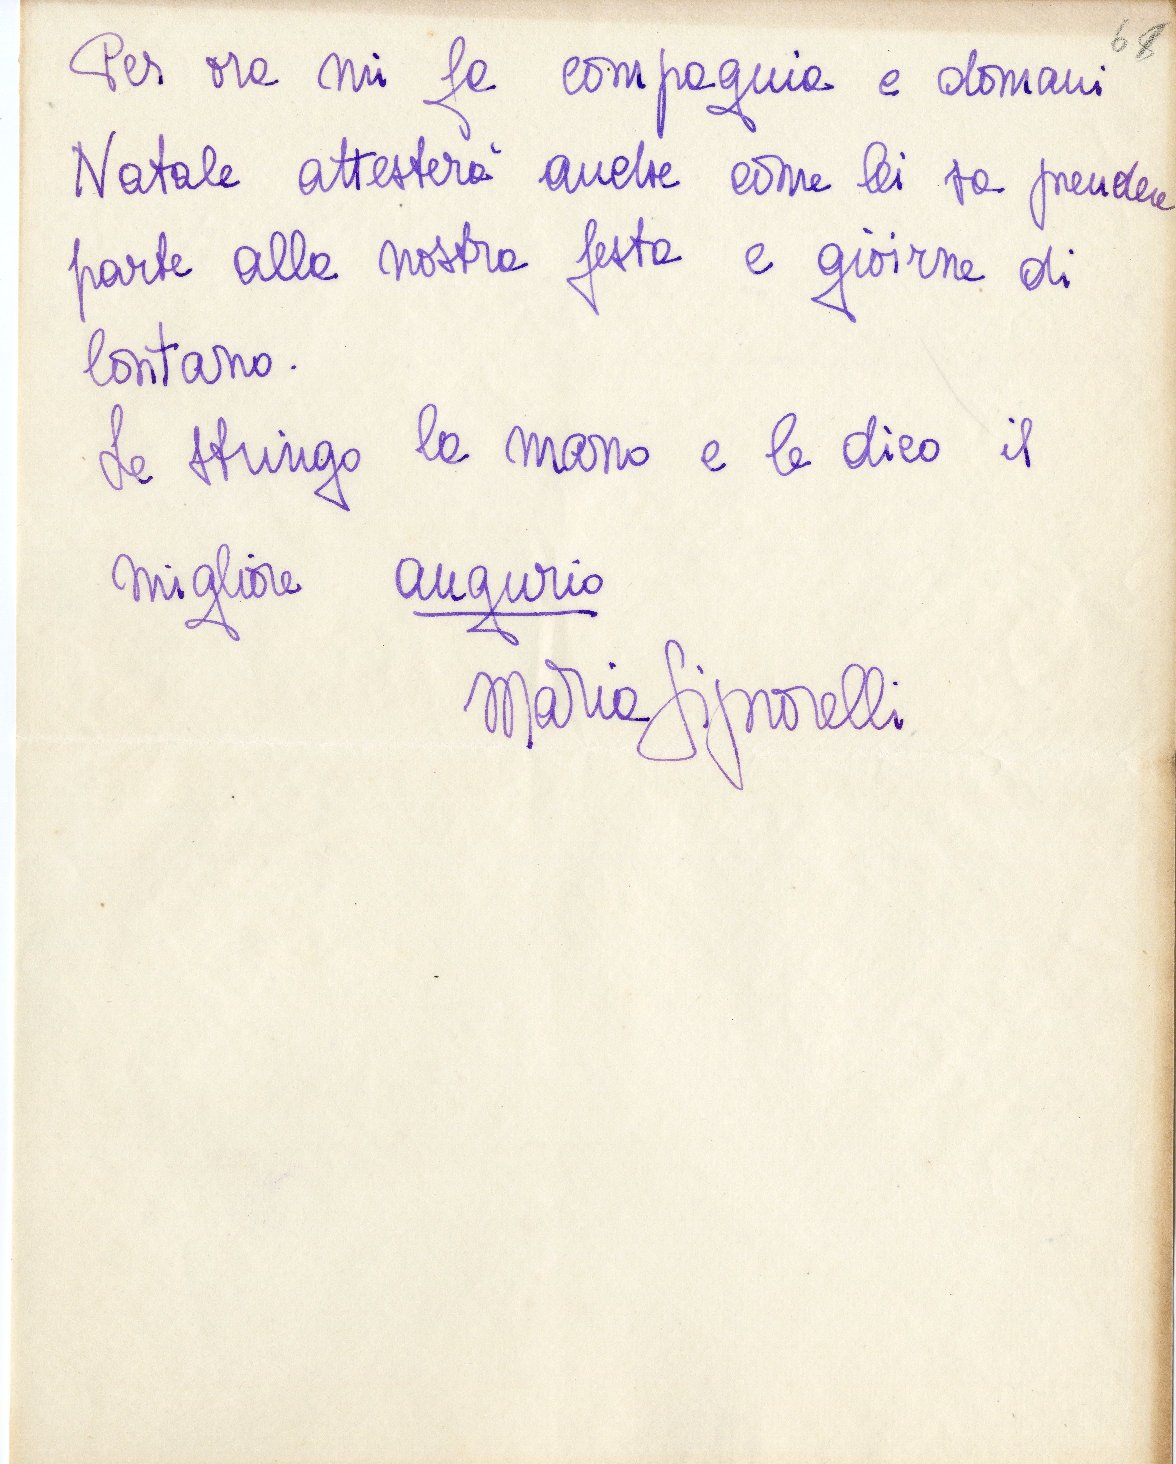 68
Per ora mi fa compagnia e domani
Natale attesterà anche come lei sa prendere
parte alla nostra festa e gioirne di
lontano.
Le stringo la mano e le dico il
migliore augurio
Maria Signorelli